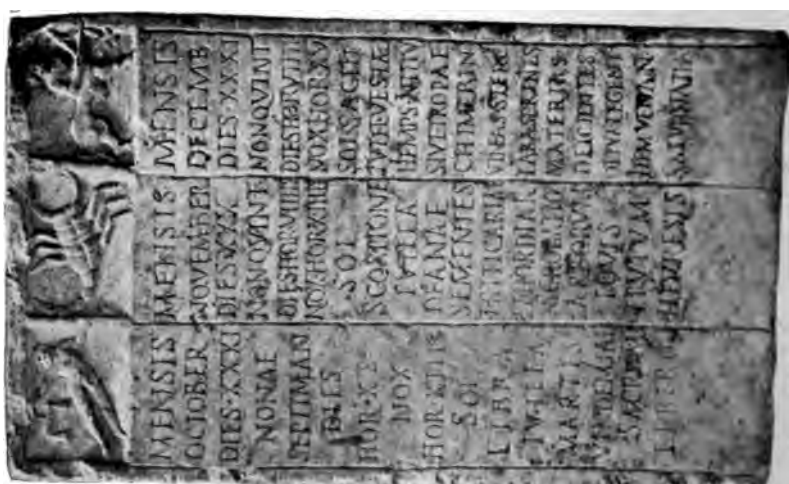 MENSIS
OCTOBER
DIES·XXXI
NONAE
SEPTIMAN
DIES
HOR·X
NOX
HOR·XIII
SOL
LIBRA
TVTELA
MARTIS
VINDEMIAE
SACRVM
LIBERO
MENSIS
NOVEMBER
DIES·XXX
NON·QVINT
DIES·HOR·VIIII
NOX·HOR·XIIII
SOL
SCORPIONE
TVTELA
DEANAE
SEMENTES
TRITICARIAE
ET·HORDIAR
SCROBATIO
ARBORVM
IOVIS
EPVLVM
HEVRESIS
MENSIS
DECEMB
DIES·XXXI
NON·QVINT
DIES·HOR·VIIII
NOX·HOR·XV
SOL·SAGITT
TVTEL·VESTAE
HIEMPS·INITIV
SIVE·TROPAE
CHIMERIN
VINEAS·STERC
FABA·SERENTES
MATERIAS
DEICIENTES
OLIVA·LEGENT
ITEM·VENAN
SATVRNALIA